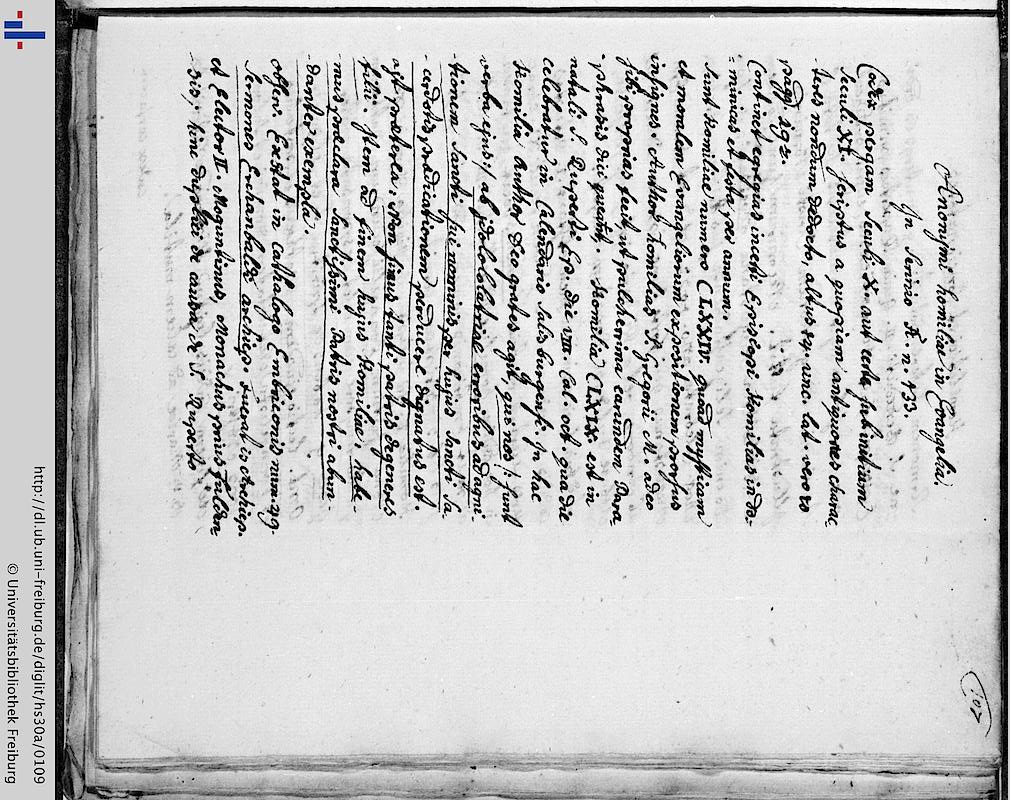 Anonymi homiliae in Evangelia.
In Scrinio F. n. 133.
Codex pergam. Seculi X. aut certe sub initium
Seculi XI. scriptus a quopiam antiquiores charac-
teres nondum dedocto, altus 14. unc. lat. vero 10
pagg. 292.
Continet egregias incerti Episcopi Homilias in do-
minicas et festa per annum.
Sunt Homiliae numero CLXXIV. quoad mysticam
et moralem Evangeliorum expositionem prorsus
insignes. Author homilias S. Gregorii M. adeo
sibi proprias fecit, ut pulcherrima earundem Para-
phrasis dici queant. Homilia CLXIX. est in
natali S. Ruperti Ep. die VIII. Cal. oct. qua die
celebratur in Calendario Salisburgensi. In hac
Homilia Author Deo grates agit, qui nos (: sunt
verba ejus:) ab idololatriae erroribus ad agni-
tionem Sancti sui nominis per hujus Sancti Sa-
cerdotis praedicationem producere dignatus est.
agit praeterea. Non simus tanti patris degeneres
filii. Item ad finem hujus Homiliae, habe-
mus praeclara Sanctissimi Patris nostri abun-
danter exempla.
Obser. Extat in Cathalogo Embriconis num. 29.
Sermones Erchanbaldi archiep. Fuerat is Archiep.
et Elector II. Moguntinus, Monachus prius Fulden-
sis, hinc de S. Ruperto
107
http://dl.ub.uni-freiburg.de/diglit/hs30a/0109
© Universitätsbibliothek Freiburg